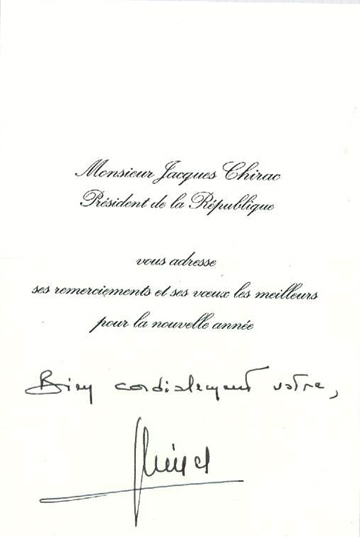 Monsieur Jacques Chirac
Président de la République
vous adresse
ses remerciements et ses vœux les meilleurs
pour la nouvelle année
Bien cordialement votre,